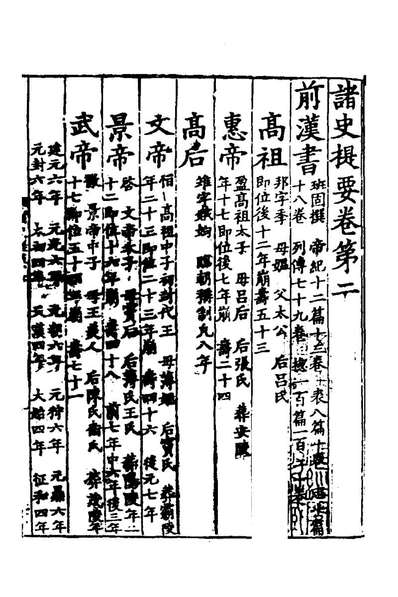 諸史提要卷第二
前漢書
班固撰　帝紀十二篇十三卷　表八篇十卷
十八卷　列傳七十九卷　總一百篇一百二十卷
高祖
邦字季　母媼　父太公　后呂氏
即位後十二年崩壽五十三
惠帝
盈高祖太子　母呂后　后張氏　葬安陵
年十七即位後七年崩　壽二十四
高后
雉字娥姁　臨朝稱制凡八年
文帝
恒　高祖中子初封代王　母薄姬　后竇氏　葬霸陵
年二十三即位二十三年崩　壽四十六　後元七年
景帝
啓　文帝太子　母竇后　后薄氏王氏　葬陽陵年三
十二即位十六年崩　壽四十八　前七年中六年後三年
武帝
徹　景帝中子　母王美人　后陳氏衞氏　葬茂陵年
十七即位五十四年崩　壽七十一
建元六年　元光六年　元朔六年　元狩六年　元鼎六年
元封六年　太初四年　天漢四年　太始四年　征和四年